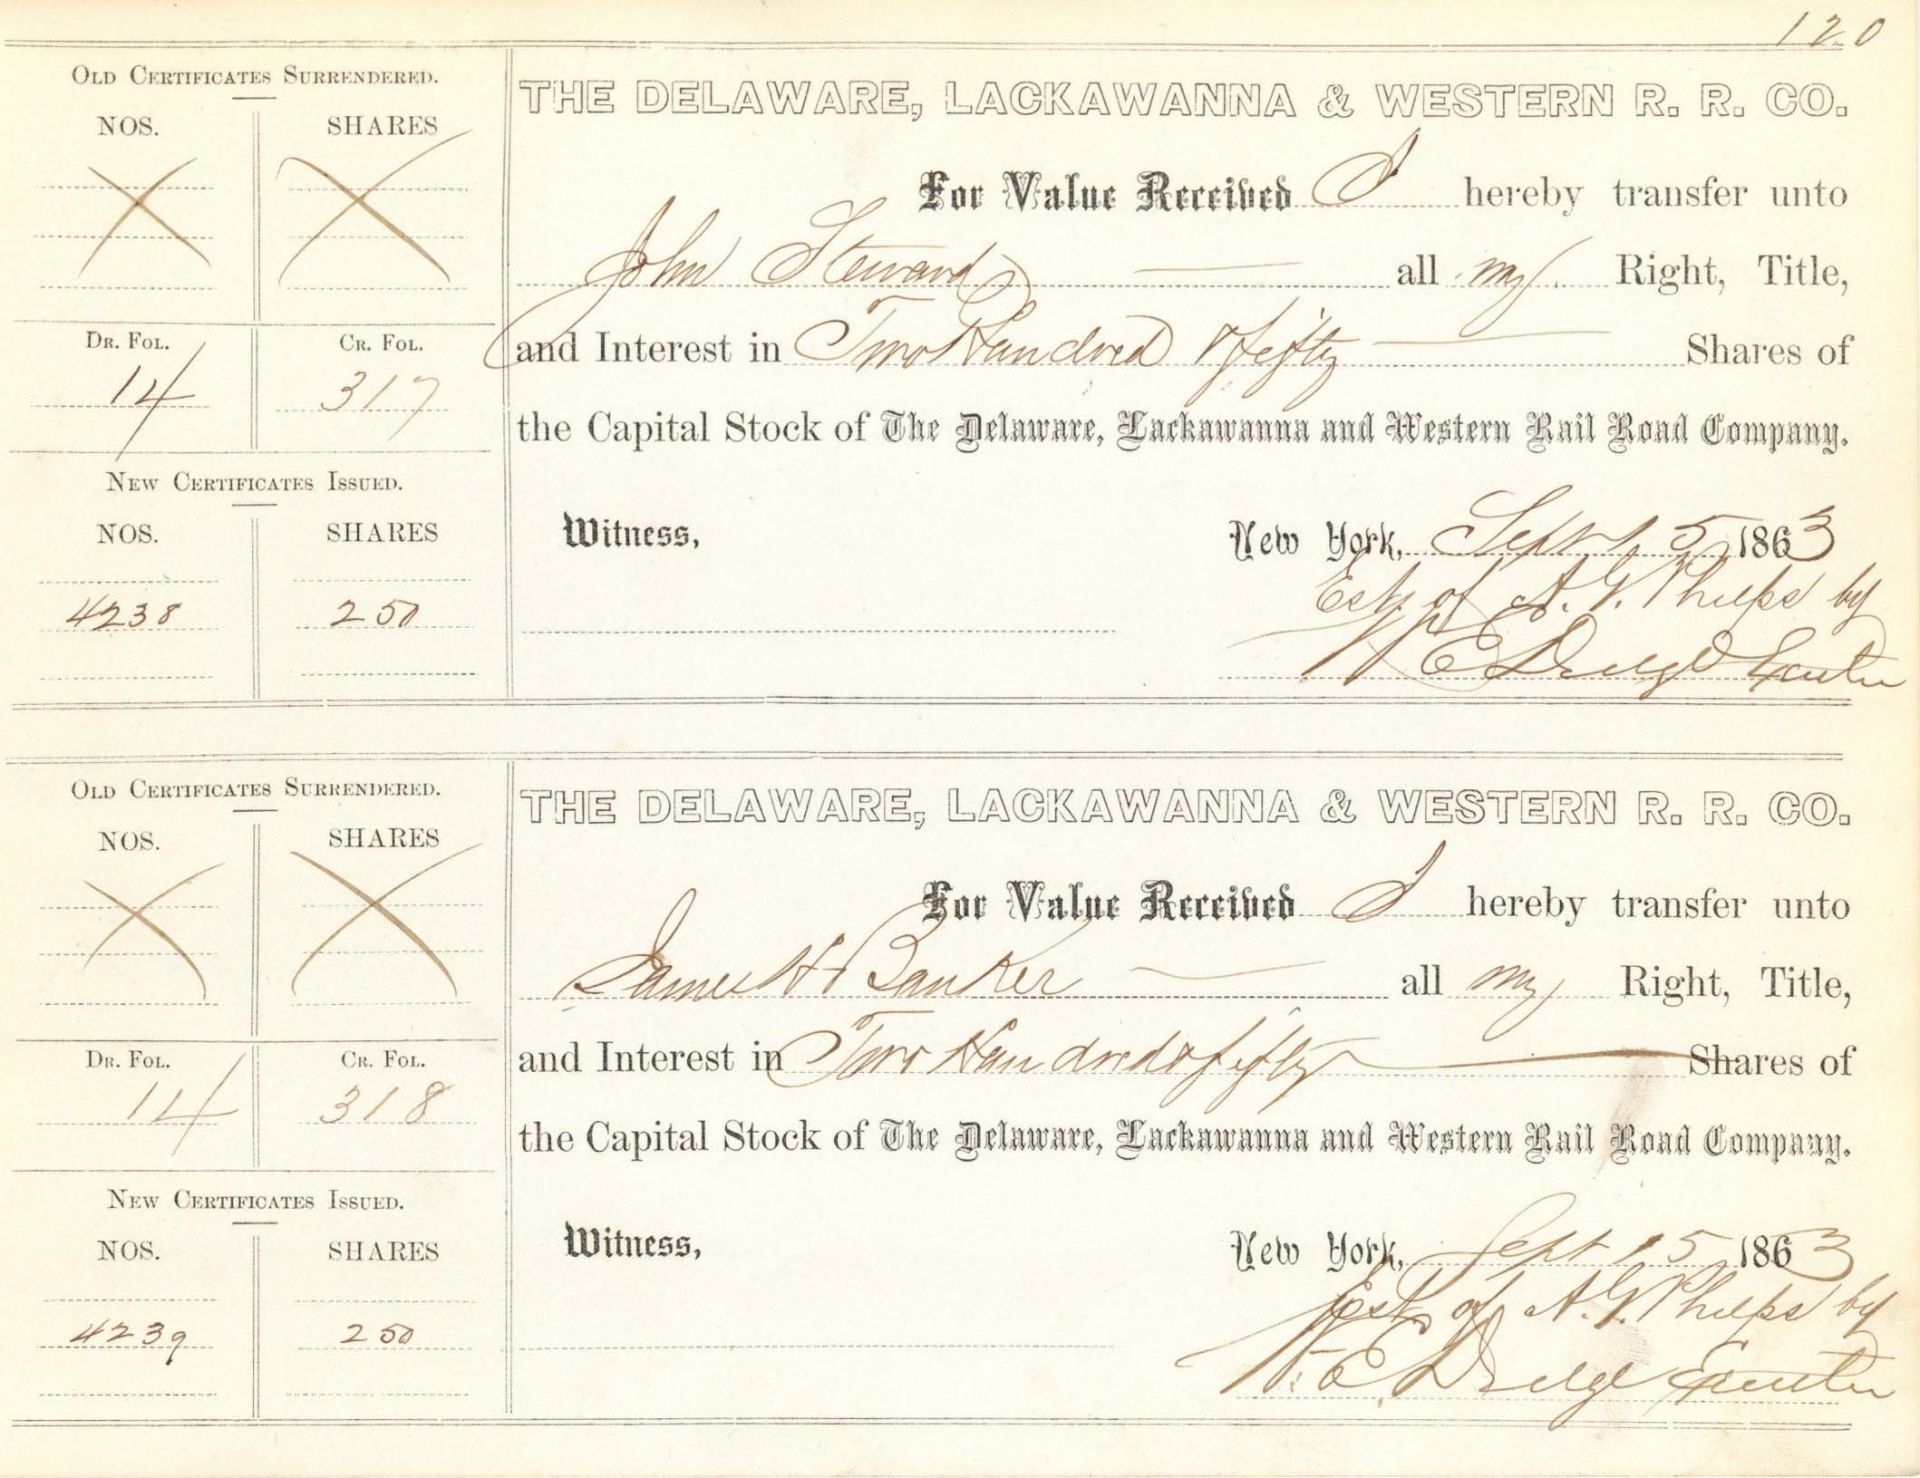 120
OLD CERTIFICATES SURRENDERED.
NOS. SHARES
DR. FOL. CR. FOL.
14 317
NEW CERTIFICATES ISSUED.
NOS. SHARES
4238 250
THE DELAWARE, LACKAWANNA & WESTERN R. R. CO.
For Value Received I hereby transfer unto
John Steward all my Right, Title,
and Interest in Two Hundred & fifty Shares of
the Capital Stock of The Delaware, Lackawanna and Western Rail Road Company.
Witness, New York, Sept 15 1863
Est. of A. G. Phelps by
W E Dodge Executor
OLD CERTIFICATES SURRENDERED.
NOS. SHARES
DR. FOL. CR. FOL.
14 318
NEW CERTIFICATES ISSUED.
NOS. SHARES
4239 250
THE DELAWARE, LACKAWANNA & WESTERN R. R. CO.
For Value Received I hereby transfer unto
James H. Banker all my Right, Title,
and Interest in Two Hundred & fifty Shares of
the Capital Stock of The Delaware, Lackawanna and Western Rail Road Company.
Witness, New York, Sept 15 1863
Est. of A. G. Phelps by
W. E Dodge Executor